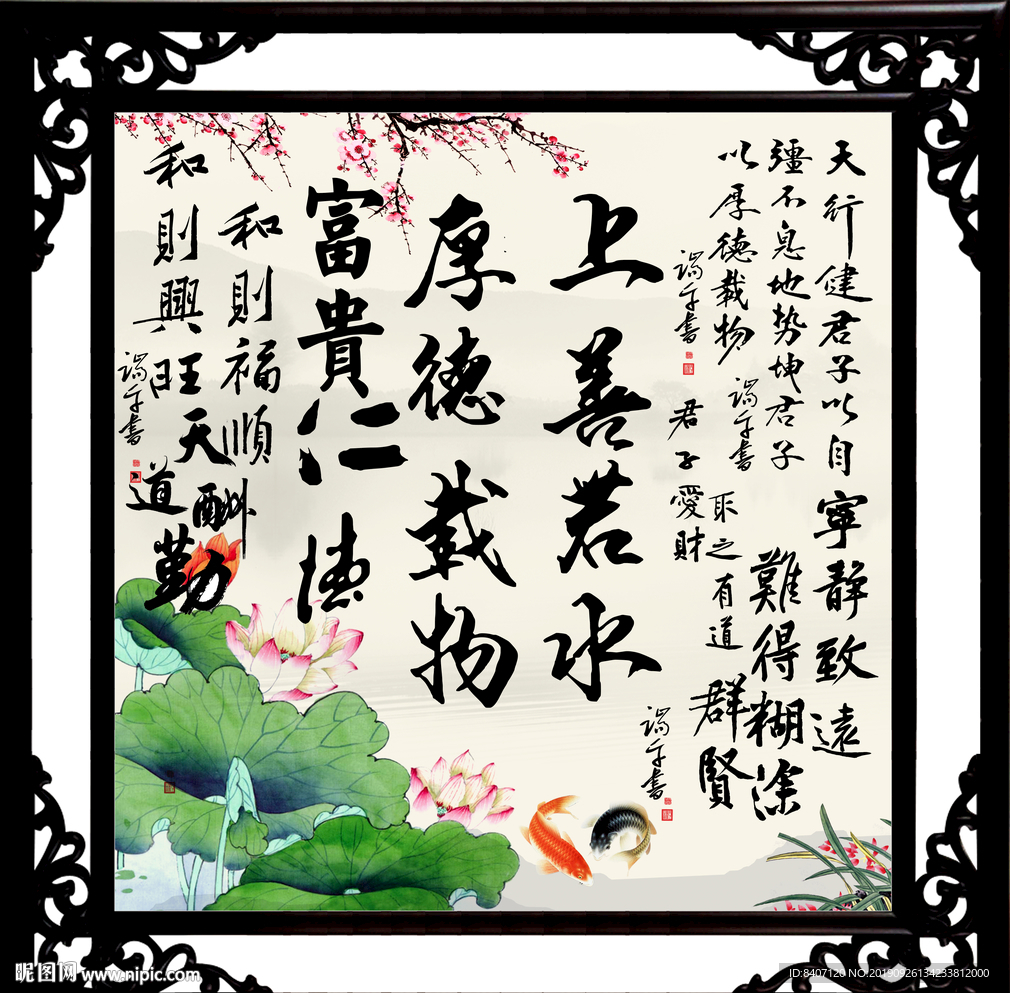 天行健君子以自
疆不息地势坤君子
以厚德載物
寧靜致遠
難得糊涂
君子愛財
取之有道
群賢
上善若水
厚德載物
富貴仁德
和則福順
和則興旺
天道酬勤
昵图网 www.nipic.com
ID:8407120 NO:20190926134233812000